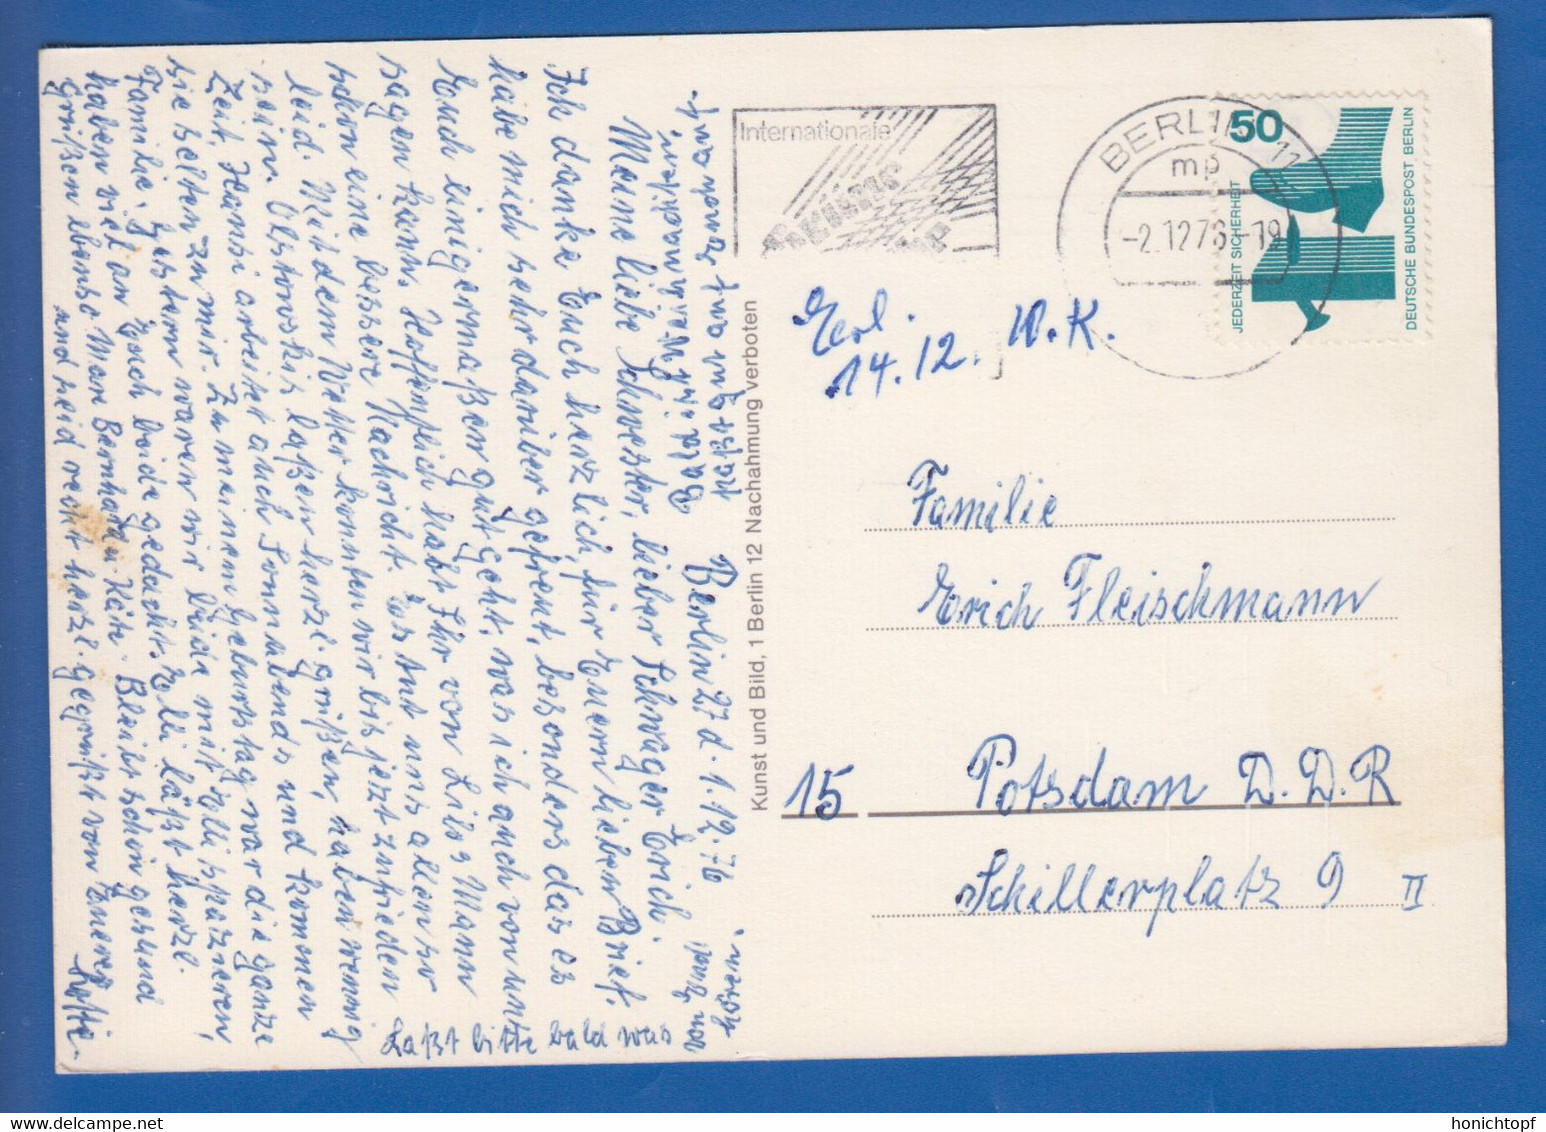 Berlin 27 d. 1.12.76
Meine liebe Schwester, lieber Schwager Erich.
Ich danke Euch herzlich für Euern lieben Brief.
habe mich sehr darüber gefreut, besonders das es
Euch einigermaßen gut geht, was ich auch von uns
sagen kann. Hoffentlich habt Ihr von Lilos Mann
schon eine bessere Nachricht. Es tut uns allen so
leid. Mit dem Wetter konnten wir bis jetzt zufrieden
sein. Olstowskis laßen herzl. grüßen, haben wenig
Zeit, Hansi arbeitet auch Sonnabends und kommen
sie selten zu mir. Zu meinem Geburtstag war die ganze
Familie. Gestern waren wir beide mit Elli spazieren,
haben viel an Euch beide gedacht. Elli läßt herzl.
Grüßen ebenso Mare Bernhard u. Käte. Bleibt schön gesund
und seid recht herzl. gegrüßt von Eurer
Lotte.
Laßt bitte bald was
von Euch
hören
paßt gut auf Euch auf.
Kunst und Bild, 1 Berlin 12 Nachahmung verboten
Internationale
BERLIN 11
mp
-2.12.76-19
50
JEDERZEIT SICHERHEIT
DEUTSCHE BUNDESPOST BERLIN
Erl.
14.12. W.K.
Familie
Erich Fleischmann
15 Potsdam D.D.R
Schillerplatz 9 II
honichtopf